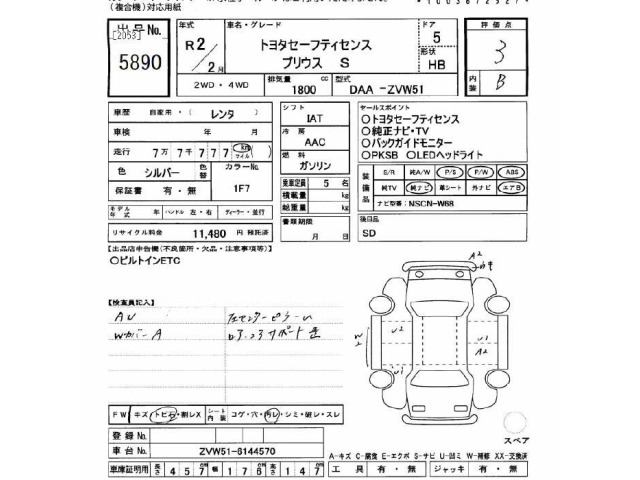 (複合機)対応用紙
出品No.
[2053]
5890
年式
R2/2月
車名・グレード
トヨタセーフティセンス
プリウス S
ドア
5
形状
HB
評価点
3
内装
B
2WD・4WD
排気量
1800 cc
型式
DAA -ZVW51
車歴 自家用・(レンタ)
車検 年 月
走行 7万7千777 km マイル
色 シルバー
色替
カラーNo.
1F7
保証書 有・無
モデル年式 年 ハンドル 左・右 ディーラー・並行
リサイクル料金 11,480 円 預託済
シフト
IAT
冷房
AAC
燃料
ガソリン
乗車定員 5 名
積載量 kg
総重量 kg
書類期限
月 日
セールスポイント
○トヨタセーフティセンス
○純正ナビ・TV
○バックガイドモニター
○PKSB ○LEDヘッドライト
装備品
S/R 純A/W P/S P/W ABS
純TV 純ナビ 革シート 外ナビ エアB
ナビ型番: NSCN-W68
後日品
SD
【出品店申告欄(不良箇所・欠品・注意事項等)】
○ビルトインETC
【検査員記入】
AU
Wカバー A
A2
U2
W2
U1
A2
U1
FW キズ・トビ石・割レX
シート内装 コゲ・穴・汚レ・シミ・破レ・スレ
登録No.
車台No. ZVW51-6144570
スペア
A-キズ C-腐食 E-エクボ S-サビ U-凹ミ W-補修 XX-交換済
車庫証明用 長さ 457 幅 176 高さ 147 工具 有・無 ジャッキ 有・無